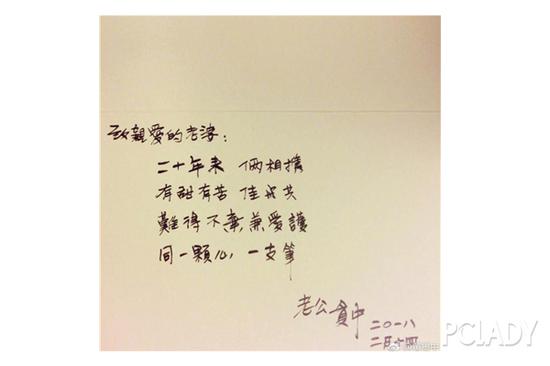 致親愛的老婆：
二十年来 倆相携
有甜有苦 佳興共
難得不棄 兼愛護
同一顆心，一支筆
老公貢中 二〇一八
二月十四
PCLADY